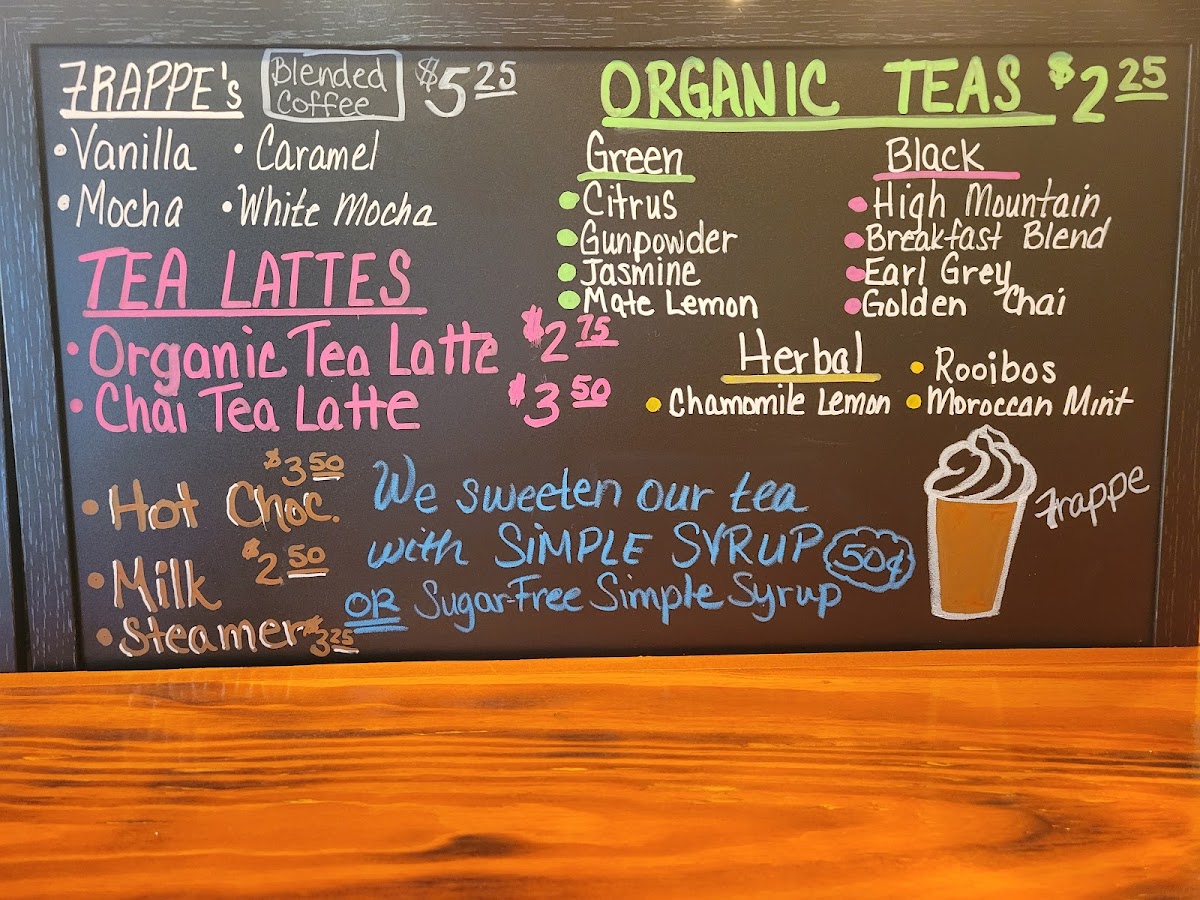 FRAPPE's Blended Coffee $5.25
• Vanilla • Caramel
• Mocha • White Mocha
TEA LATTES
• Organic Tea Latte $2.75
• Chai Tea Latte $3.50
• Hot Choc. $3.50
• Milk $2.50
• Steamer $3.25
ORGANIC TEAS $2.25
Green
• Citrus
• Gunpowder
• Jasmine
• Mate Lemon
Black
• High Mountain
• Breakfast Blend
• Earl Grey
• Golden Chai
Herbal
• Rooibos
• Chamomile Lemon • Moroccan Mint
We sweeten our tea
with SIMPLE SYRUP 50¢
OR Sugar-Free Simple Syrup
Frappe